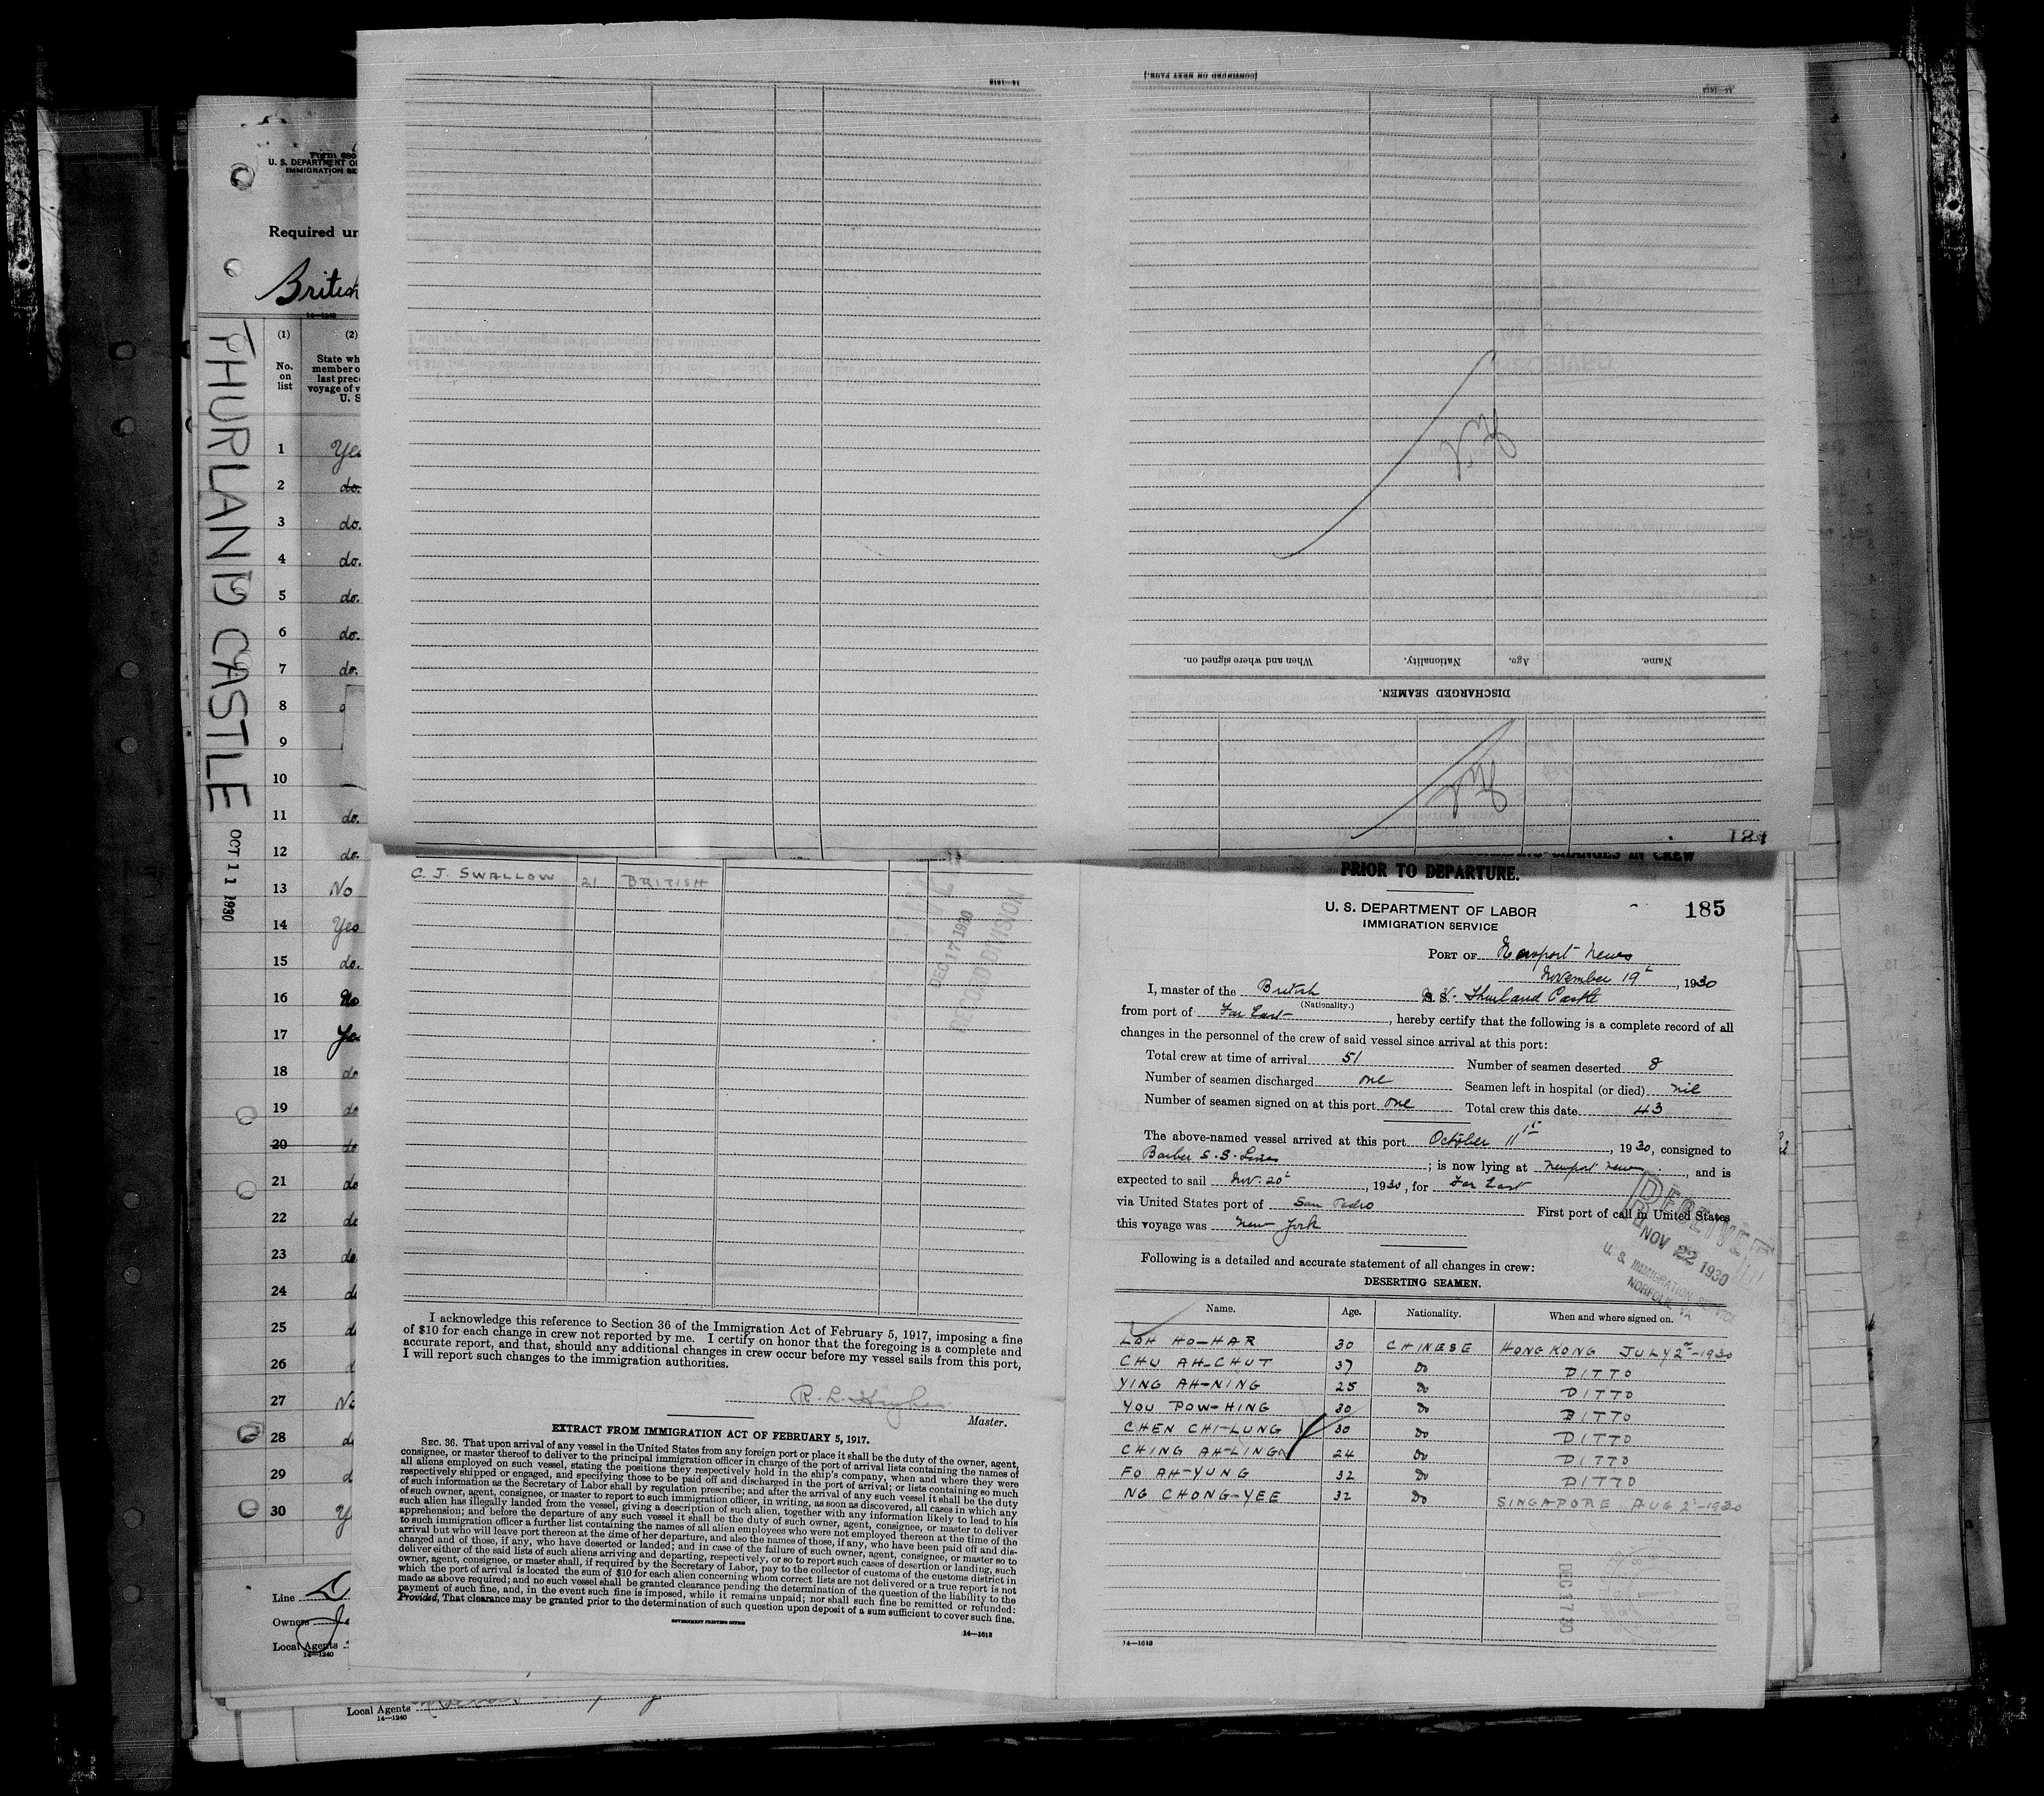 14—1618
[CONTINUED ON NEXT PAGE.]
14—1618
When and where signed on.
Nationality.
Age.
Name.
DISCHARGED SEAMEN.
184
U. S. DEPARTMENT OF
IMMIGRATION SE
Required un
British
14—1240
(1)
(2)
No. on list
State wh
member o
last prec
voyage of v
U. S
1 Yes
2 do.
3 do.
4 do.
5 do.
6 do.
7 do.
8
9
10
11 do.
12 do.
13 No
14 Yes
15 do.
16 No
17 Yes
18 do
19 do
20 do
21 do
22 do
23 do.
24 d
25 d
26 d
27 No
28 d
29 d
30 Y
Line
Owners
Local Agents
14—1240
THURLAND CASTLE
OCT 11 1930
C. J. SWALLOW 21 BRITISH
DEC 17 1930
RECORD DIVISION
I acknowledge this reference to Section 36 of the Immigration Act of February 5, 1917, imposing a fine
of $10 for each change in crew not reported by me. I certify on honor that the foregoing is a complete and
accurate report, and that, should any additional changes in crew occur before my vessel sails from this port,
I will report such changes to the immigration authorities.
R. L. Hughes
Master.
EXTRACT FROM IMMIGRATION ACT OF FEBRUARY 5, 1917.
SEC. 36. That upon arrival of any vessel in the United States from any foreign port or place it shall be the duty of the owner, agent,
consignee, or master thereof to deliver to the principal immigration officer in charge of the port of arrival lists containing the names of
all aliens employed on such vessel, stating the positions they respectively hold in the ship's company, when and where they were
respectively shipped or engaged, and specifying those to be paid off and discharged in the port of arrival; or lists containing so much
of such information as the Secretary of Labor shall by regulation prescribe; and after the arrival of any such vessel it shall be the duty
of such owner, agent, consignee, or master to report to such immigration officer, in writing, as soon as discovered, all cases in which any
such alien has illegally landed from the vessel, giving a description of such alien, together with any information likely to lead to his
apprehension; and before the departure of any such vessel it shall be the duty of such owner, agent, consignee, or master to deliver
to such immigration officer a further list containing the names of all alien employees who were not employed thereon at the time of the
arrival but who will leave port thereon at the time of her departure, and also the names of those, if any, who have been paid off and dis-
charged and of those, if any, who have deserted or landed; and in case of the failure of such owner, agent, consignee, or master so to
deliver either of the said lists of such aliens arriving and departing, respectively, or so to report such cases of desertion or landing, such
owner, agent, consignee, or master shall, if required by the Secretary of Labor, pay to the collector of customs of the customs district in
which the port of arrival is located the sum of $10 for each alien concerning whom correct lists are not delivered or a true report is not
made as above required; and no such vessel shall be granted clearance pending the determination of the question of the liability to the
payment of such fine, and, in the event such fine is imposed, while it remains unpaid; nor shall such fine be remitted or refunded:
Provided, That clearance may be granted prior to the determination of such question upon deposit of a sum sufficient to cover such fine.
GOVERNMENT PRINTING OFFICE
14—1618
CHANGES IN CREW
PRIOR TO DEPARTURE.
U. S. DEPARTMENT OF LABOR
IMMIGRATION SERVICE
185
PORT OF Newport News
November 19th, 1930
I, master of the British M.V. Thurland Castle
(Nationality.)
from port of Far East, hereby certify that the following is a complete record of all
changes in the personnel of the crew of said vessel since arrival at this port:
Total crew at time of arrival 51 Number of seamen deserted 8
Number of seamen discharged one Seamen left in hospital (or died) nil
Number of seamen signed on at this port one Total crew this date 43
The above-named vessel arrived at this port October 11th, 1930, consigned to
Barber S.S. Lines; is now lying at Newport News, and is
expected to sail Nov. 20th, 1930, for Far East
via United States port of San Pedro First port of call in United States
this voyage was New York
RECEIVED
NOV 22 1930
U. S. IMMIGRATION SERVICE
NORFOLK, VA
Following is a detailed and accurate statement of all changes in crew:
DESERTING SEAMEN.
Name. Age. Nationality. When and where signed on.
LOH HO-HAR 30 CHINESE HONG KONG JULY 2nd-1930
CHU AH-CHUT 37 DO DITTO
YING AH-NING 25 DO DITTO
YOU POW-HING 30 DO DITTO
CHEN CHI-LUNG 30 DO DITTO
CHING AH-LING 24 DO DITTO
FO AH-YUNG 32 DO DITTO
NG CHONG-YEE 32 DO SINGAPORE AUG 2-1930
DEC 17 30
14—1618
Local Agents
14—1240